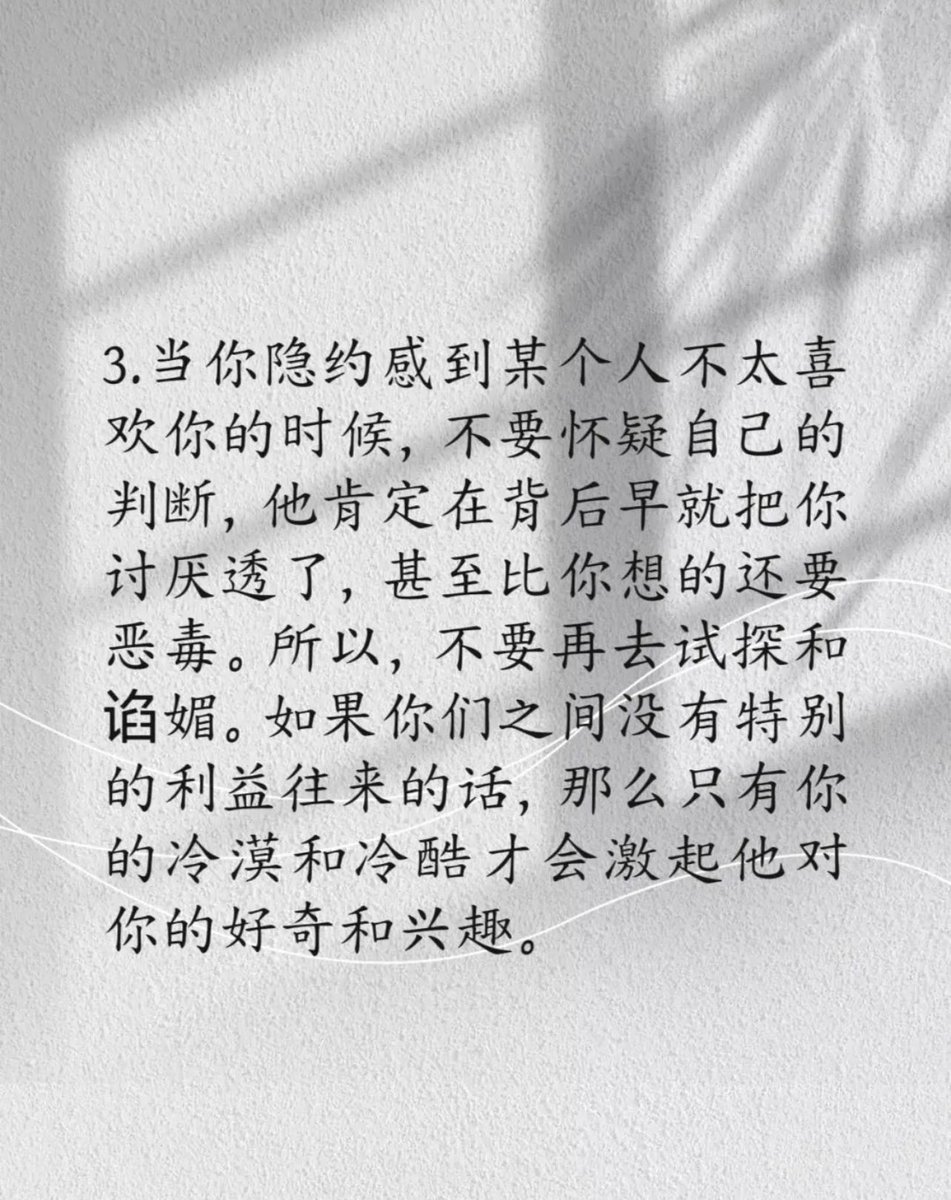 3.当你隐约感到某个人不太喜
欢你的时候，不要怀疑自己的
判断，他肯定在背后早就把你
讨厌透了，甚至比你想的还要
恶毒。所以，不要再去试探和
谄媚。如果你们之间没有特别
的利益往来的话，那么只有你
的冷漠和冷酷才会激起他对
你的好奇和兴趣。